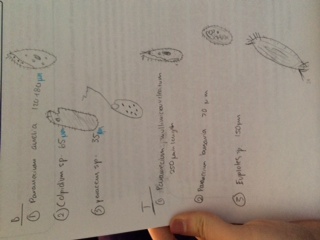 D
① Paramecium aurelia 120-180 µm
② Colpidium sp. 65 µm
③ sp. 35 µm
I
① Paramecium
250 µm length
② Paramecium bursaria µm
③ Euplotes sp. 150 µm